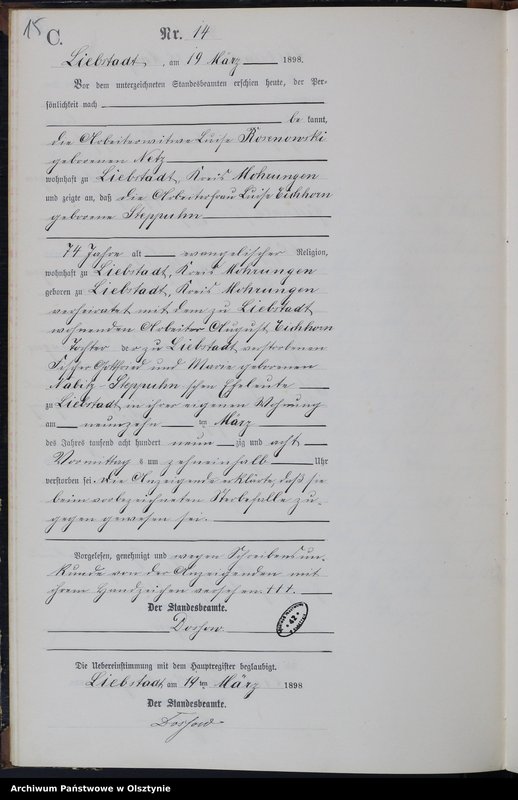 15
C.
Nr. 14
Liebstadt, am 19 März 1898.
Vor dem unterzeichneten Standesbeamten erschien heute, der Per-
sönlichkeit nach
be kannt,
die Arbeiterwitwe Luise Rosenowski
geborenen Netz
wohnhaft zu Liebstadt, Kreis Mohrungen
und zeigte an, daß die Arbeiterfrau Luise Eichhorn
geborene Steppuhn
74 Jahre alt evangelischer Religion,
wohnhaft zu Liebstadt, Kreis Mohrungen
geboren zu Liebstadt, Kreis Mohrungen
verheiratet mit dem zu Liebstadt
wohnenden Arbeiter August Eichhorn
Tochter der zu Liebstadt verstorbenen
Fischer Gottfried und Marie geborenen
Nabitz-Steppuhn'schen Eheleute
zu Liebstadt in ihrer eigenen Wohnung
am neunzehn ten März
des Jahres tausend acht hundert neun zig und acht
Vormittags um zehneinhalb Uhr
verstorben sei. Die Anzeigende erklärte, daß sie
beim vorbezeichneten Sterbefalle zu-
gegen gewesen sei.
Vorgelesen, genehmigt und wegen Schreibensun-
kunde von der Anzeigenden mit
ihrem Handzeichen versehen. ttt.
Der Standesbeamte.
Die Uebereinstimmung mit dem Hauptregister beglaubigt.
Liebstadt, am 19 ten März 1898
Der Standesbeamte.
Archiwum Państwowe w Olsztynie